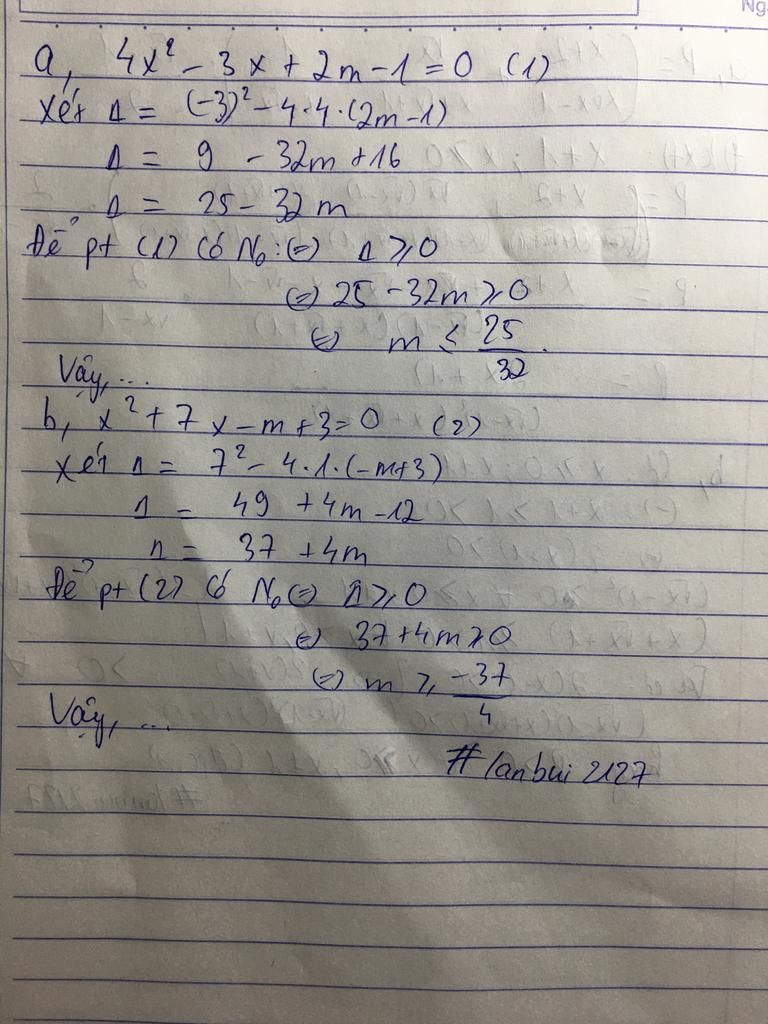 a, 4x² - 3x + 2m - 1 = 0 (1)
xét Δ = (-3)² - 4·4·(2m-1)
Δ = 9 - 32m + 16
Δ = 25 - 32m
Để pt (1) có No: ⇔ Δ ≥ 0
⇔ 25 - 32m ≥ 0
⇔ m ≤ 25/32.
Vậy, ...
b, x² + 7x - m + 3 = 0 (2)
xét Δ = 7² - 4·1·(-m+3)
Δ = 49 + 4m - 12
Δ = 37 + 4m
Để pt (2) có No ⇔ Δ ≥ 0
⇔ 37 + 4m ≥ 0
⇔ m ≥ -37/4
Vậy, ...
# lanbui 2127